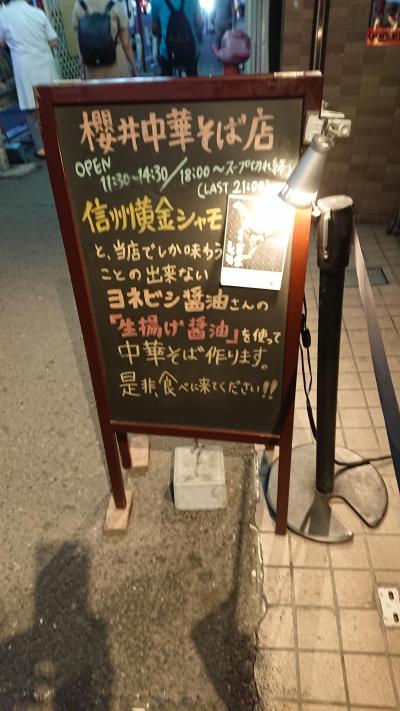 櫻井中華そば店
OPEN
11:30~14:30/18:00~スープ切れ終了
(LAST 21:00)
信州黄金シャモ
と、当店でしか味わう
ことの出来ない
ヨネビシ醤油さんの
「生揚げ醤油」を使って
中華そば作ります。
是非、食べに来てください!!